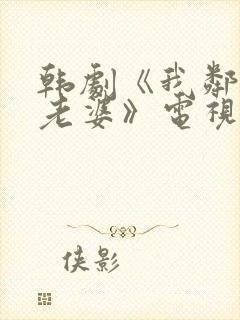 韩劇《我鄰
老婆》電視
侠影